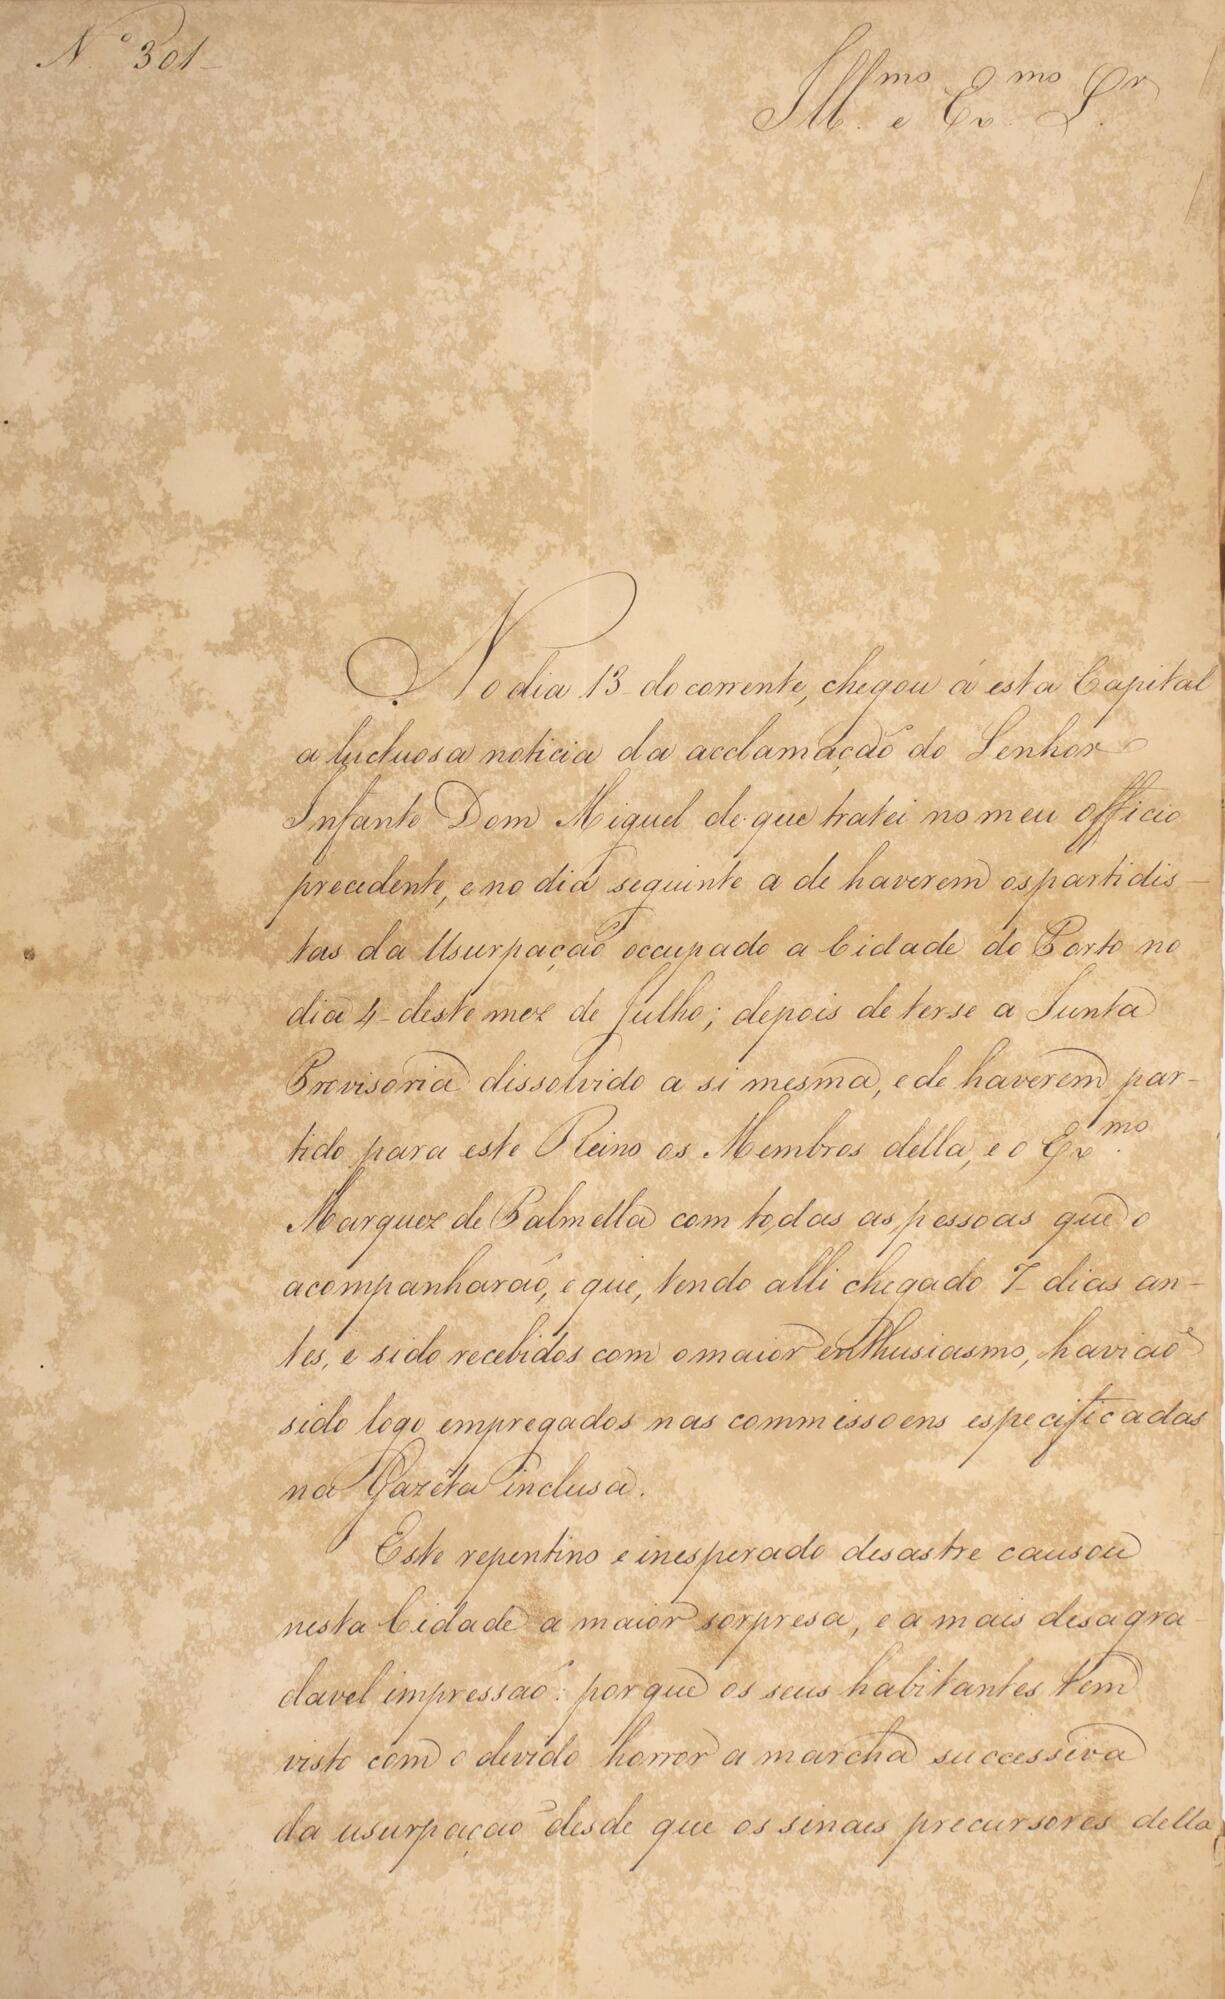 Nº 301-
Illmo. e Exmo. Sr.
No dia 13 do corrente, chegou á esta Capital
a luctuosa noticia da acclamação do Senhor
Infante Dom Miguel de que tratei no meu officio
precedente, e no dia seguinte a de haverem os partidis-
tas da Usurpação occupado a Cidade do Porto no
dia 4 deste mez de Julho; depois de ter-se a Junta
Provisoria dissolvido a si mesma, e de haverem par-
tido para este Reino os Membros della, e o Exmo.
Marquez de Palmella com todas as pessoas que o
acompanharão, e que, tendo alli chegado 7 dias an-
tes, e sido recebidos com o maior enthusiasmo, havião
sido logo empregados nas commissoens especificadas
na Gazeta inclusa.
Este repentino e inesperado desastre causou
nesta Cidade a maior sorpresa, e a mais desagra-
davel impressão: porque os seus habitantes tem
visto com o devido horror a marcha successiva
da usurpação desde que os sinaes precursores della